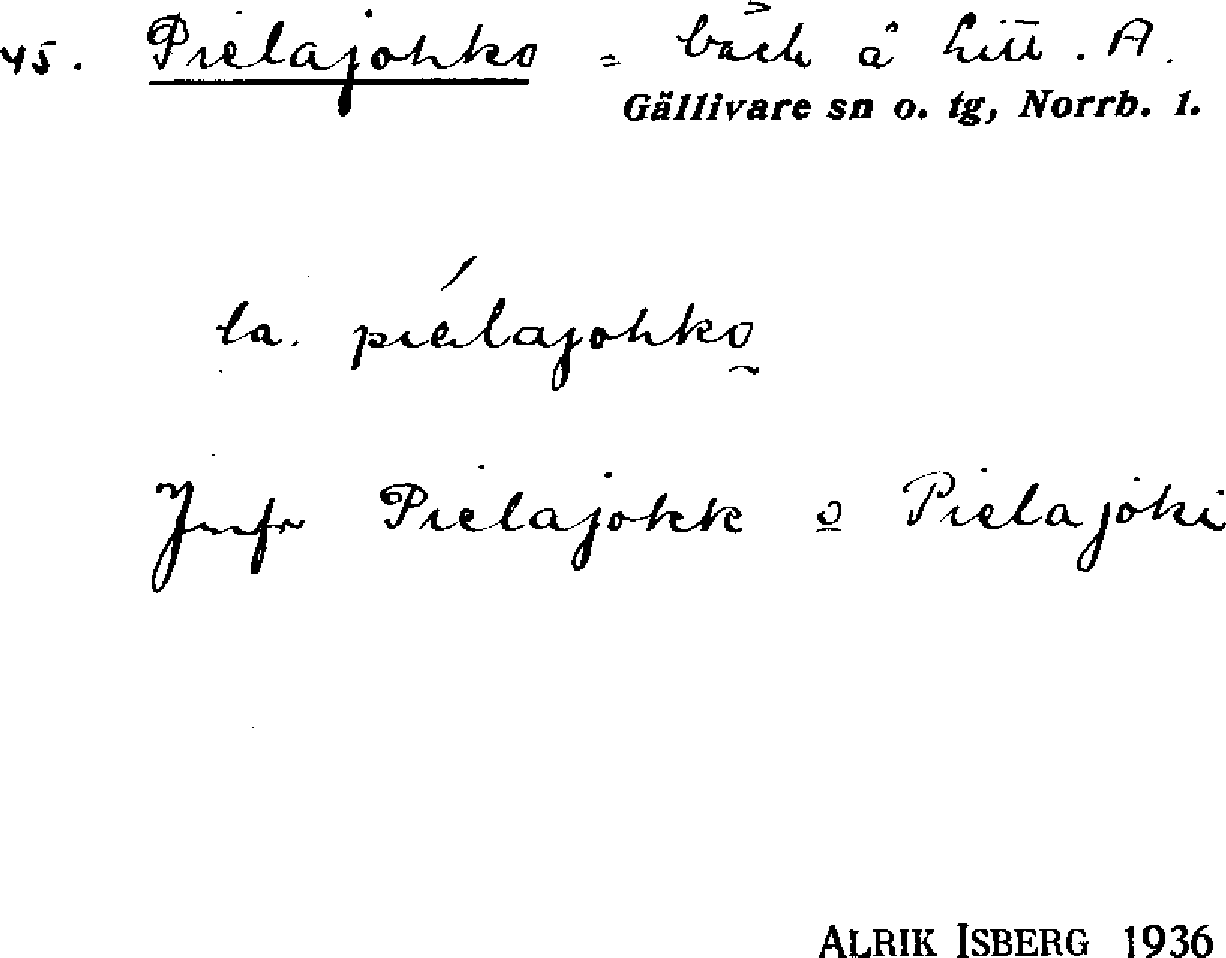 45. Pielajohko = bäck å Litt. A.
Gällivare sn o. tg, Norrb. l.
la. piélajohko̰
Jmfr Pielajokk o Pielajoki
ALRIK ISBERG 1936